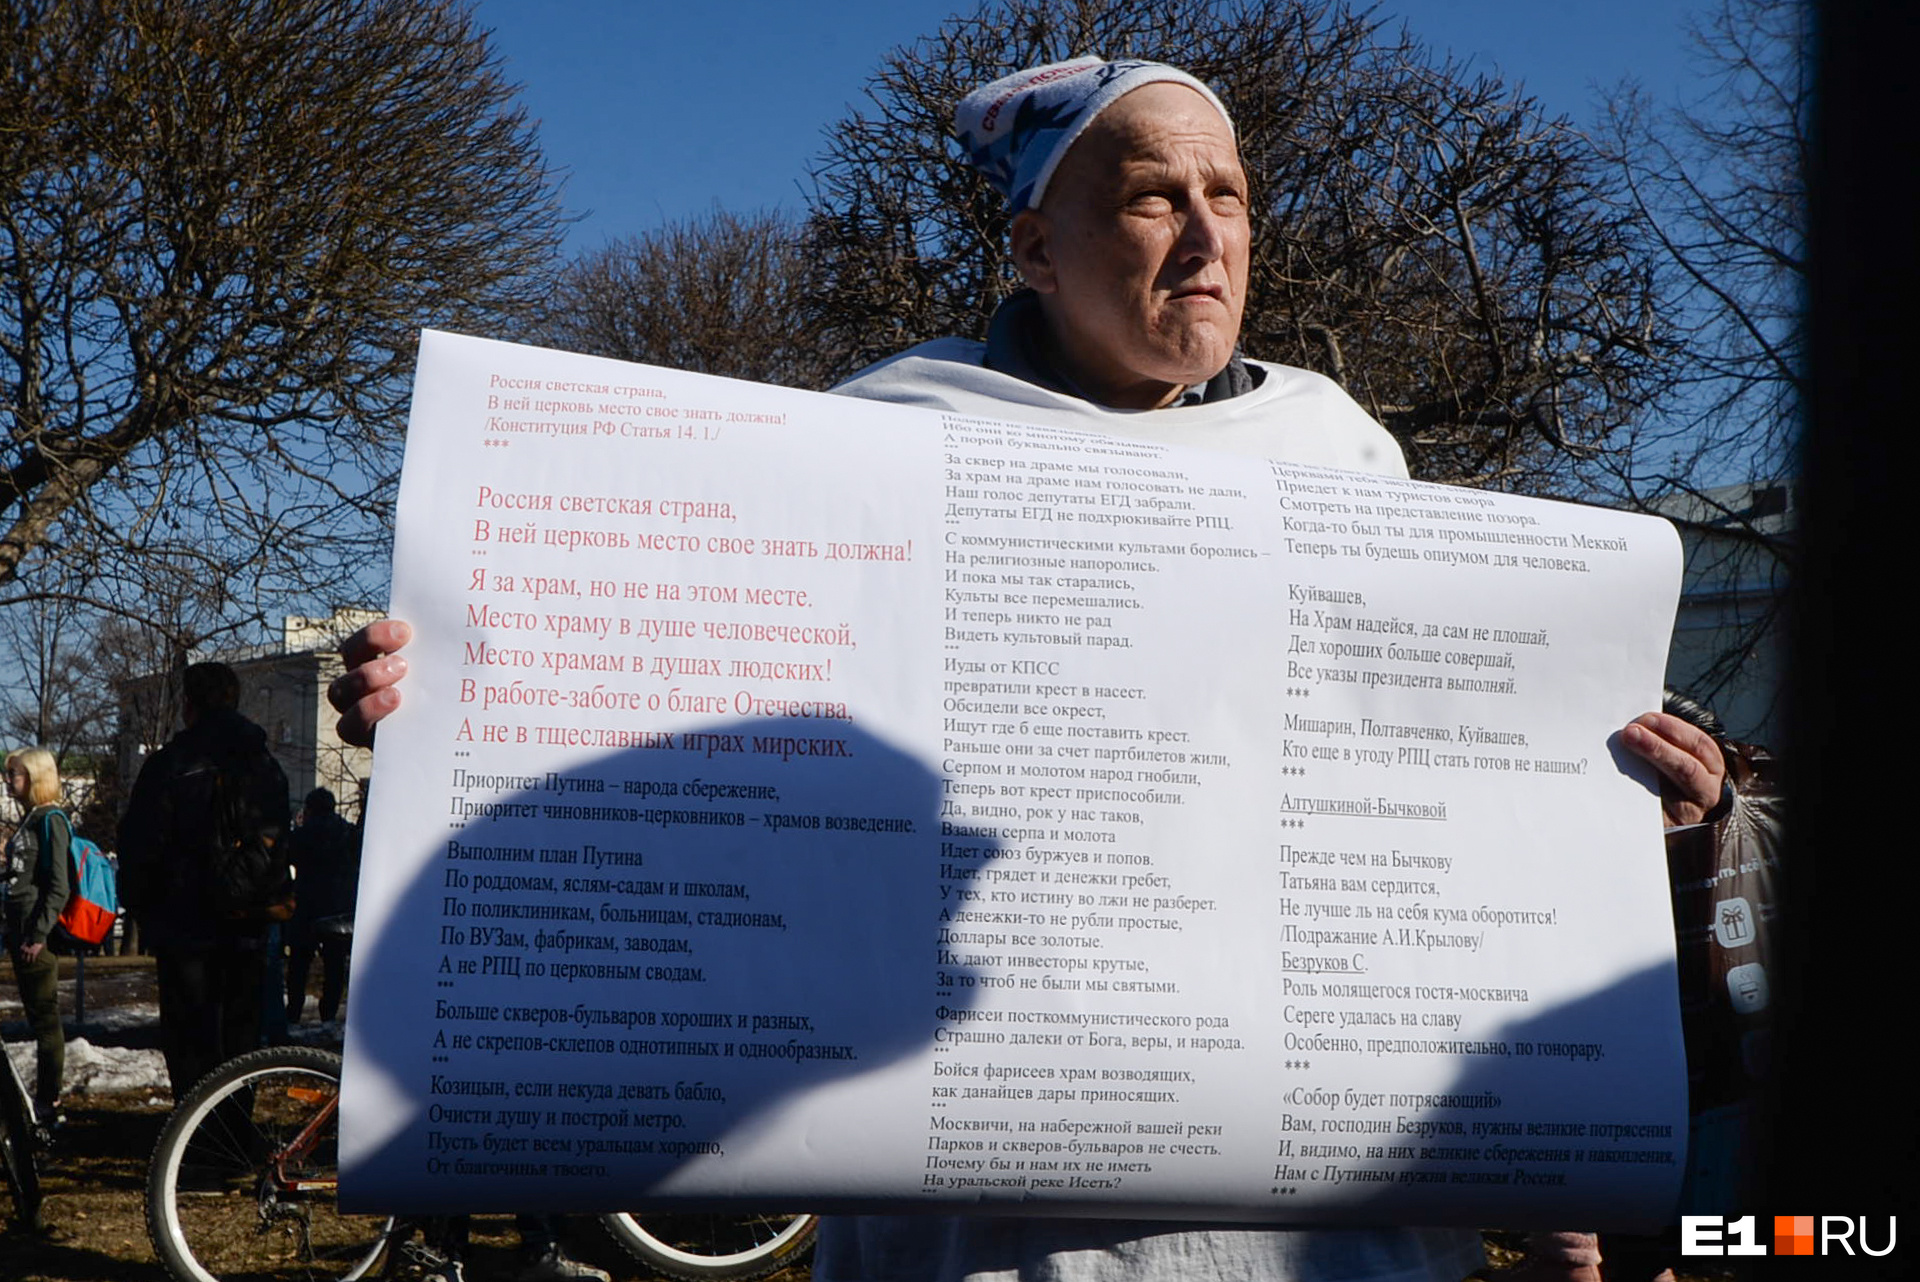 Россия светская страна,
В ней церковь место свое знать должна!
/Конституция РФ Статья 14. 1./
***
Россия светская страна,
В ней церковь место свое знать должна!
***
Я за храм, но не на этом месте.
Место храму в душе человеческой,
Место храмам в душах людских!
В работе-заботе о благе Отечества,
А не в тщеславных играх мирских.
***
Приоритет Путина – народа сбережение,
Приоритет чиновников-церковников – храмов возведение.
***
Выполним план Путина
По роддомам, яслям-садам и школам,
По поликлиникам, больницам, стадионам,
По ВУЗам, фабрикам, заводам,
А не РПЦ по церковным сводам.
***
Больше скверов-бульваров хороших и разных,
А не скрепов-склепов однотипных и однообразных.
***
Козицын, если некуда девать бабло,
Очисти душу и построй метро.
Пусть будет всем уральцам хорошо,
От благочинья твоего.
Подарки не навязывают,
Ибо они ко многому обязывают,
А порой буквально связывают.
***
За сквер на драме мы голосовали,
За храм на драме нам голосовать не дали,
Наш голос депутаты ЕГД забрали.
Депутаты ЕГД не подхрюкивайте РПЦ.
***
С коммунистическими культами боролись –
На религиозные напоролись.
И пока мы так старались,
Культы все перемешались.
И теперь никто не рад
Видеть культовый парад.
***
Иуды от КПСС
превратили крест в насест.
Обсидели все окрест,
Ищут где б еще поставить крест.
Раньше они за счет партбилетов жили,
Серпом и молотом народ гнобили,
Теперь вот крест приспособили.
Да, видно, рок у нас таков,
Взамен серпа и молота
Идет союз буржуев и попов.
Идет, грядет и денежки гребет,
У тех, кто истину во лжи не разберет.
А денежки-то не рубли простые,
Доллары все золотые.
Их дают инвесторы крутые,
За то чтоб не были мы святыми.
***
Фарисеи посткоммунистического рода
Страшно далеки от Бога, веры, и народа.
***
Бойся фарисеев храм возводящих,
как данайцев дары приносящих.
***
Москвичи, на набережной вашей реки
Парков и скверов-бульваров не счесть.
Почему бы и нам их не иметь
На уральской реке Исеть?
***
Церквами тебя застроят
Приедет к нам туристов свора
Смотреть на представление позора.
Когда-то был ты для промышленности Меккой
Теперь ты будешь опиумом для человека.
Куйвашев,
На Храм надейся, да сам не плошай,
Дел хороших больше совершай,
Все указы президента выполняй.
***
Мишарин, Полтавченко, Куйвашев,
Кто еще в угоду РПЦ стать готов не нашим?
***
Алтушкиной-Бычковой
***
Прежде чем на Бычкову
Татьяна вам сердится,
Не лучше ль на себя кума оборотится!
/Подражание А.И.Крылову/
Безруков С.
Роль молящегося гостя-москвича
Сереге удалась на славу
Особенно, предположительно, по гонорару.
***
«Собор будет потрясающий»
Вам, господин Безруков, нужны великие потрясения
И, видимо, на них великие сбережения и накопления,
Нам с Путиным нужна великая Россия.
***
E1 RU